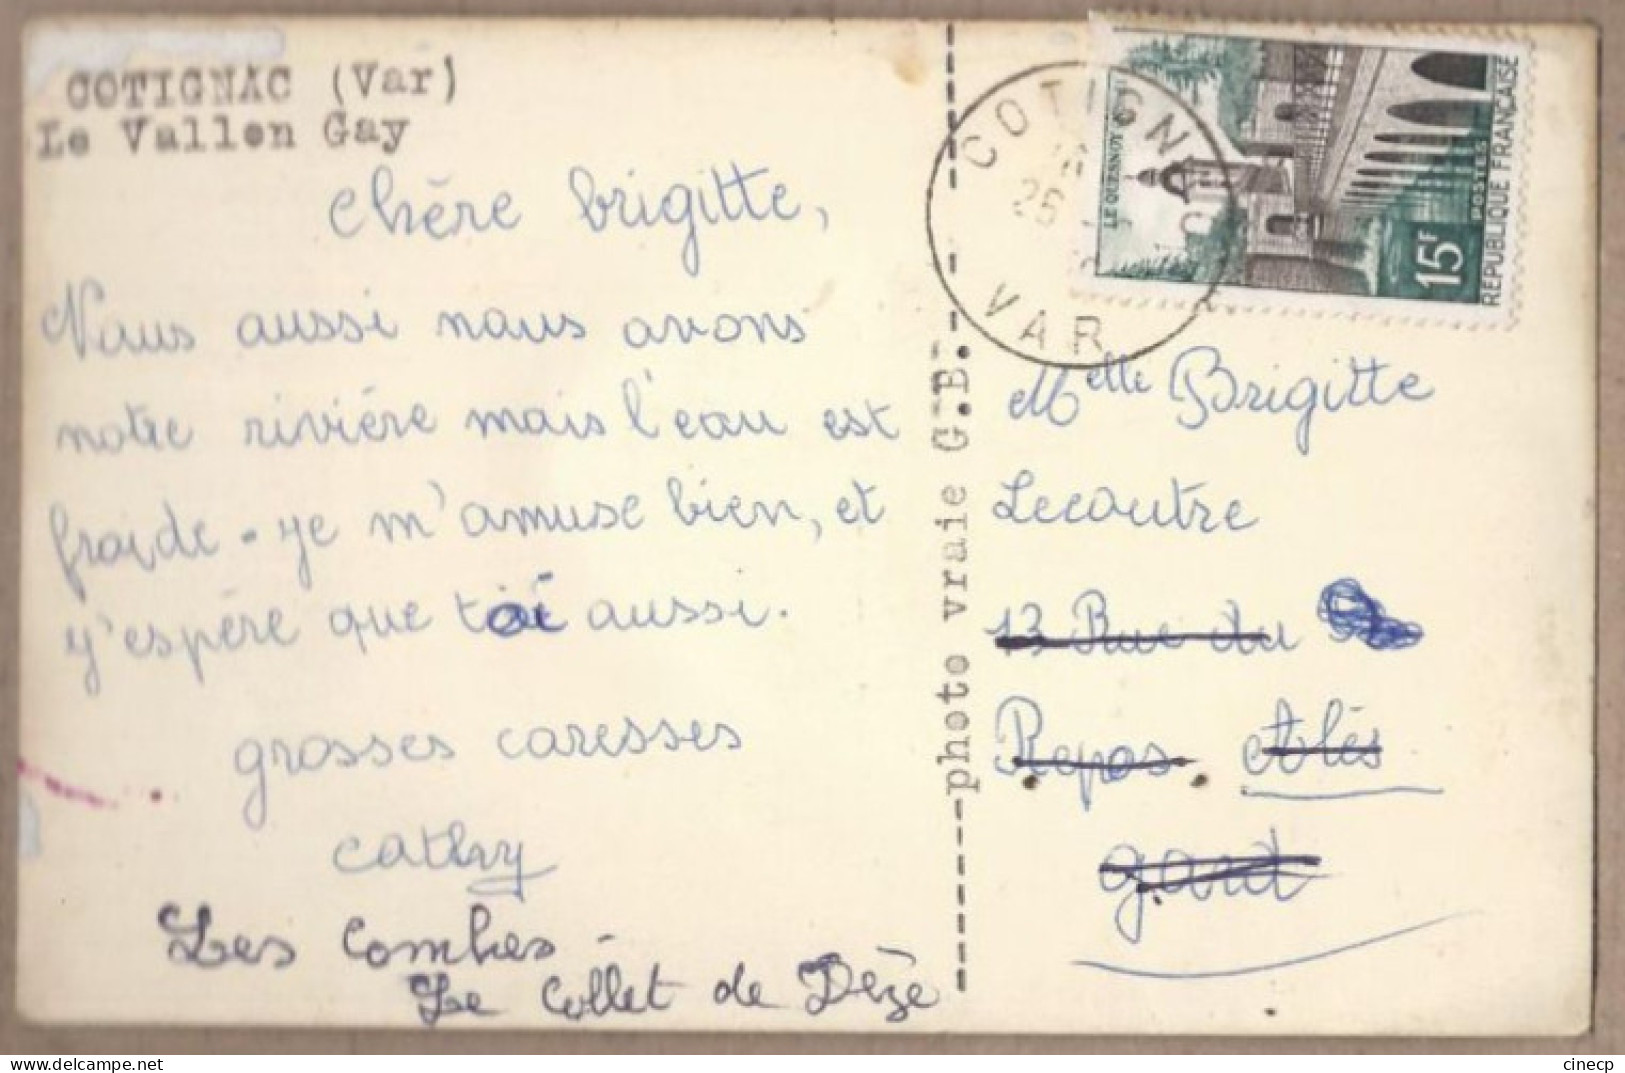 COTIGNAC (Var)
Le Vallon Gay
chère brigitte,
Nous aussi nous avons
notre rivière mais l'eau est
froide. je m'amuse bien, et
j'espère que toi aussi.
grosses caresses
cathy
Les Combes -
Le Collet de Dèze
photo vraie G.B.
COTIGN
25
VAR
LE QUESNOY
15F
POSTES
REPUBLIQUE FRANÇAISE
Melle Brigitte
Lecoutre
13 Rue du
Repos Alès
gard
cinecp